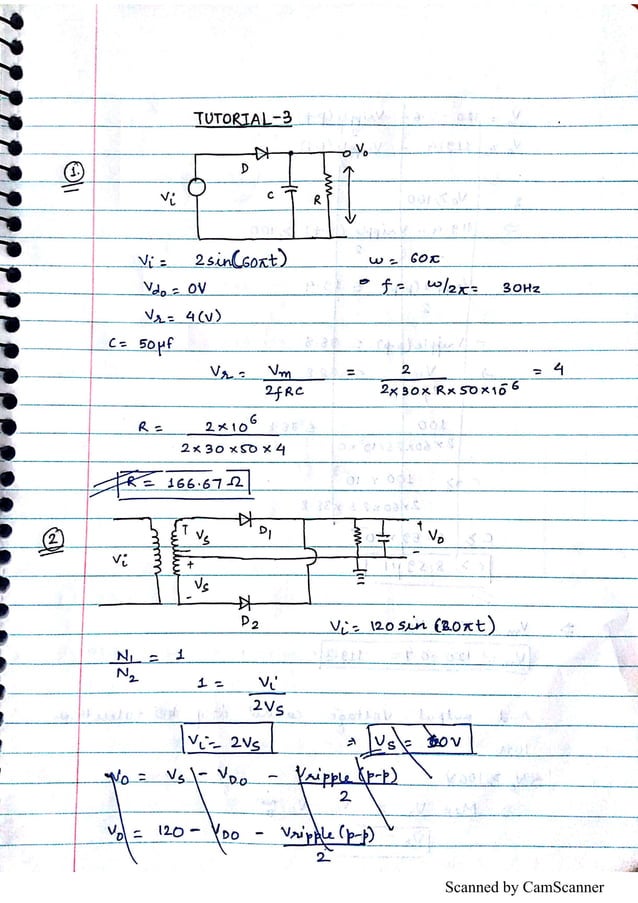 TUTORIAL-3
1.
D
Vo
Vi
C
R
Vi = 2sin(60πt)
ω = 60π
Vdo = 0V
f = ω/2π = 30Hz
Vr = 4(V)
C = 50μf
Vr = Vm / 2fRC = 2 / 2×30×R×50×10^-6 = 4
R = 2×10^6 / 2×30×50×4
R = 166.67Ω
2
Vi
T Vs
D1
+ Vs
-
D2
+ Vo
-
Vi = 120sin(120πt)
N1/N2 = 1
1 = Vi / 2Vs
Vi = 2Vs
⇒ Vs = 60V
Vo = Vs - VDo - Vripple(p-p) / 2
Vo = 120 - VDo - Vripple(p-p) / 2
Scanned by CamScanner